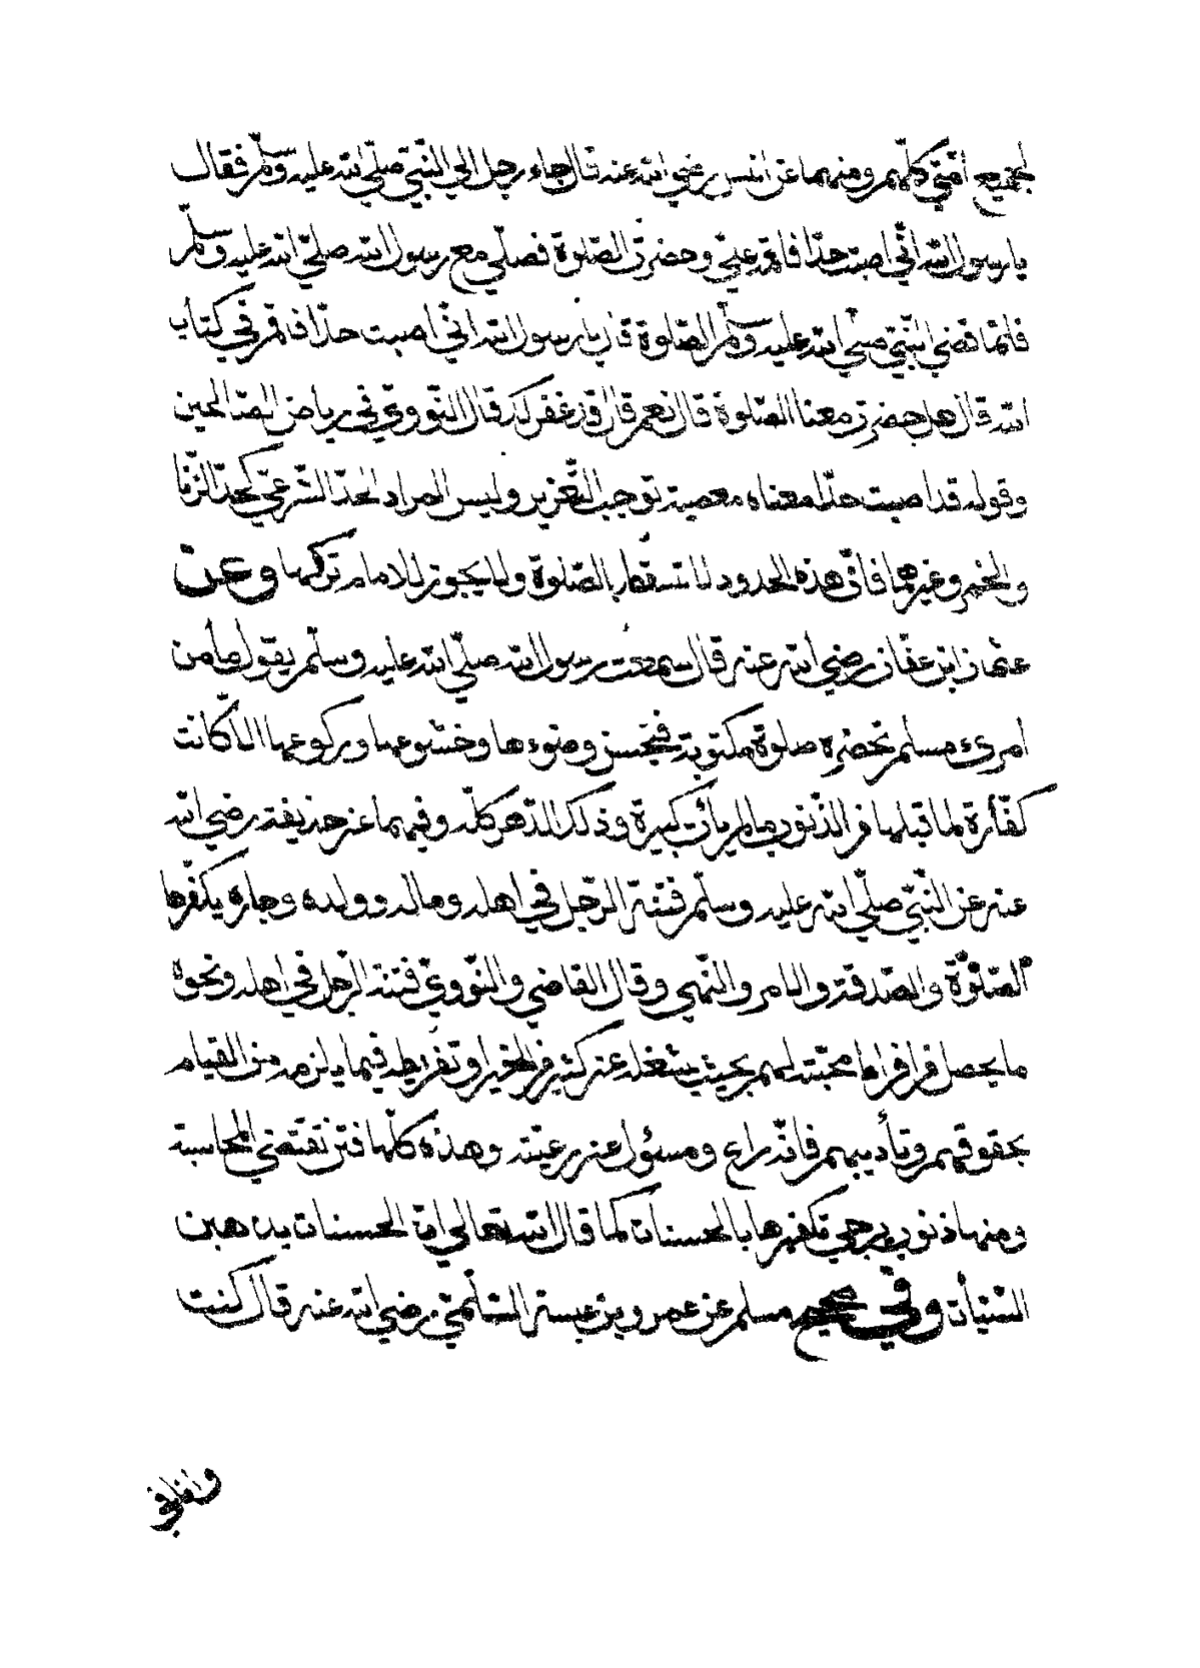 لجميع امّتي كلّهم ومنهما عن انس رضي الله عنه قال جاء رجل الي النّبيّ صلّي الله عليه وسلّم فقال
يا رسول الله انّي اصبت حدّا فاقمه عليّ وحضرت الصّلوة فصلّي مع رسول الله صلّي الله عليه وسلّم
فلمّا قضي النّبيّ صلّي الله عليه وسلّم الصّلوة قال يا رسول الله انّي اصبت حدّا فاقم في كتاب
الله قال هل حضرت معنا الصّلوة قال نعم قال قد غفر لك قال النّوويّ في رياض الصّالحين
وقوله قد اصبت حدّا معناه معصية توجب التّعزير وليس المراد الحدّ الشّرعيّ كحدّ الزّنا
والخمر وغيرهما فانّ هذه الحدود لا تسقط بالصّلوة ولا يجوز للامام تركها وعن
عثمان ابن عفّان رضي الله عنه قال سمعت رسول الله صلّي الله عليه وسلّم يقول ما من
امرئ مسلم تحضره صلوة مكتوبة فيحسن وضوءها وخشوعها وركوعها الّا كانت
كفّارة لما قبلها من الذّنوب ما لم يأت كبيرة وذلك الدّهر كلّه وفيهما عن حذيفة رضي الله
عنه عن النّبيّ صلّي الله عليه وسلّم فتنة الرّجل في اهله وماله وولده وجاره يكفّرها
الصّلوة والصّدقة والامر والنّهي وقال القاضي والنّوويّ فتنة الرّجل في اهله ونحوه
ما يحصل من افراط محبّته لهم بحيث يشغله عن كثير من الخير او تفريطه فيما يلزمه من القيام
بحقوقهم وتأديبهم فانّه راع ومسئول عن رعيّته وهذه كلّها فتن تقتضي المحاسبة
ومنها ذنوب يرجي تكفيرها بالحسنات كما قال الله تعالي انّ الحسنات يذهبن
السّيّأت وفي صحيح مسلم عن عمرو بن عبسة السّلميّ رضي الله عنه قال كنت